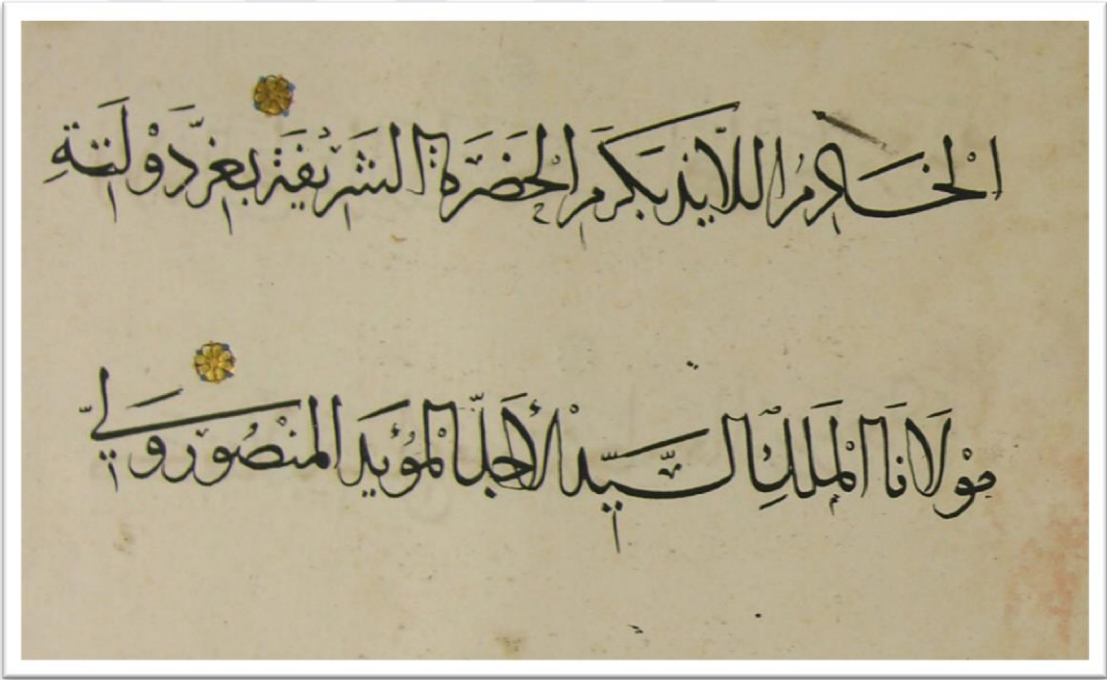 الْخَادِمُ اللَّائِذُ بِكَرَمِ الْحَضْرَةِ الشَّرِيفَةِ بِعِزِّ دَوْلَتِهِ
مَوْلَانَا الْمَلِكِ السَّيِّدِ الْأَجَلِّ الْمُؤَيَّدِ الْمَنْصُورِ وَلِيِّ